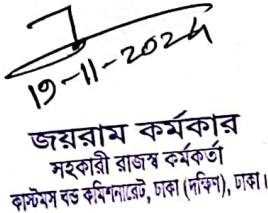 19-11-2024
জয়রাম কর্মকার
সহকারী রাজস্ব কর্মকর্তা
কাস্টমস বন্ড কমিশনারেট, ঢাকা (দক্ষিণ), ঢাকা।